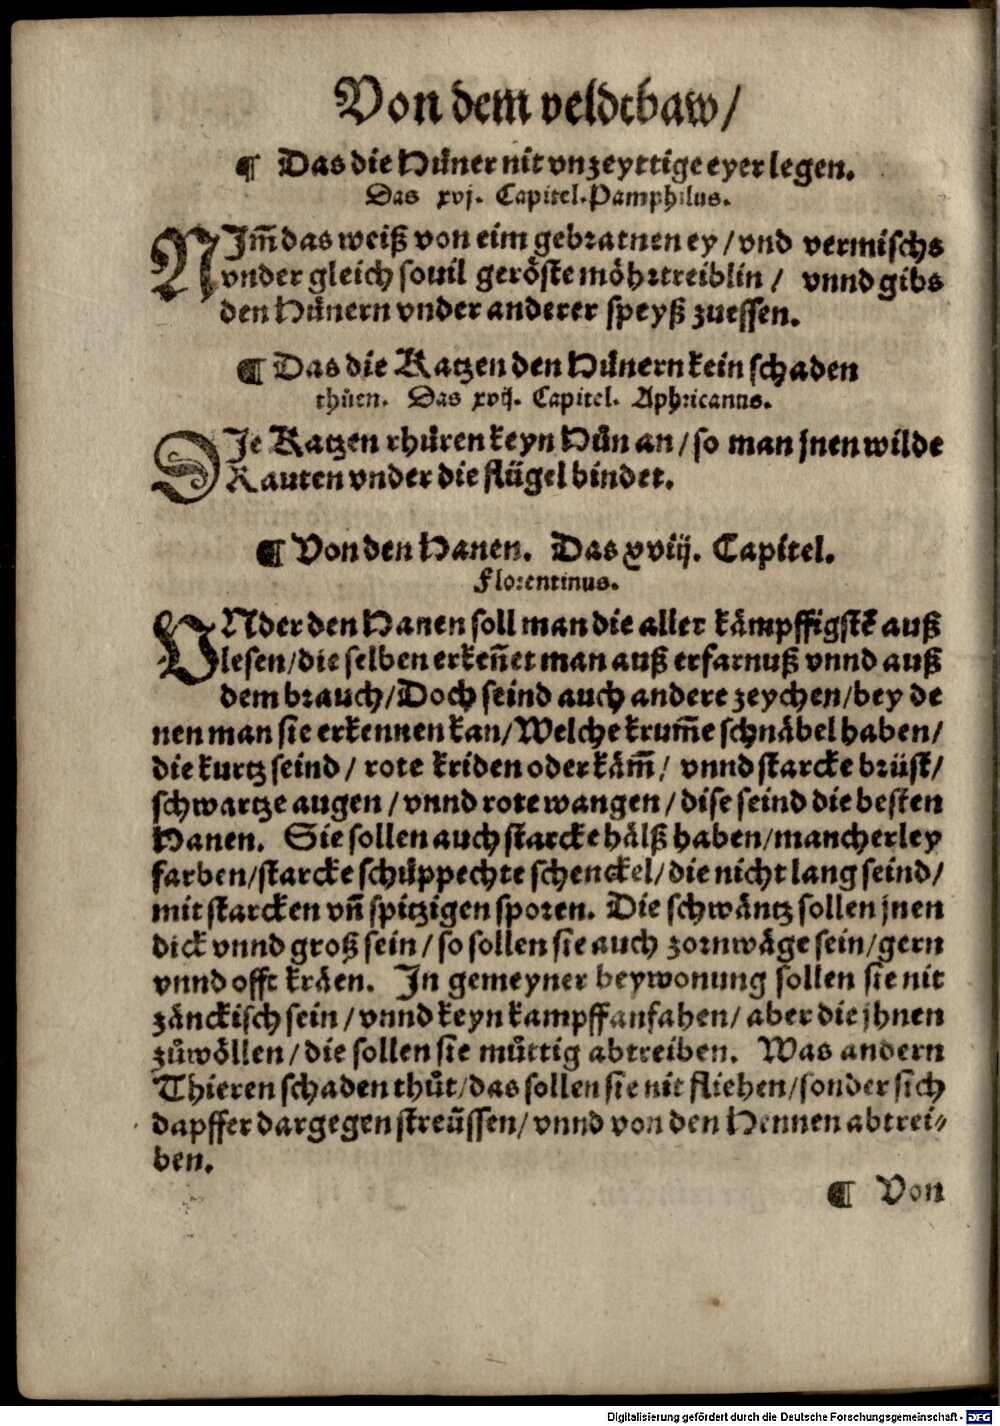 Von dem veldtbaw/
¶ Das die Hüner nit vnzeyttige eyer legen.
Das xvj. Capitel. Pamphilus.
NJm̃ das weiß von eim gebratnen ey / vnd vermischs
vnder gleich souil geröste möhrtreiblin / vnnd gibs
den Hünern vnder anderer speyß zuessen.
¶ Das die Katzen den Hünern kein schaden
thüen. Das xvij. Capitel. Aphricanus.
DJe Katzen rhüren keyn Hůn an / so man jnen wilde
Rauten vnder die flügel bindet.
¶ Von den Hanen. Das xviij. Capitel.
Florentinus.
VNder den Hanen soll man die aller kämpffigstẽ auß
lesen/die selben erkeñet man auß erfarnuß vnnd auß
dem brauch/Doch seind auch andere zeychen/bey de
nen man sie erkennen kan/Welche krum̃e schnäbel haben/
die kurtz seind / rote kriden oder käm̃/ vnnd starcke brüst/
schwartze augen / vnnd rote wangen / dise seind die besten
Hanen. Sie sollen auch starcke hälß haben/mancherley
farben/starcke schüppechte schenckel/die nicht lang seind/
mit starcken vñ spitzigen sporen. Die schwäntz sollen jnen
dick vnnd groß sein / so sollen sie auch zornwäge sein/gern
vnnd offt kräen. In gemeyner beywonung sollen sie nit
zänckisch sein / vnnd keyn kampff anfahen/ aber die jhnen
zůwöllen / die sollen sie můttig abtreiben. Was andern
Thieren schaden thůt/das sollen sie nit fliehen/sonder sich
dapffer dargegen streüssen/ vnnd von den Hennen abtrei⸗
ben.
¶ Von
Digitalisierung gefördert durch die Deutsche Forschungsgemeinschaft - DFG